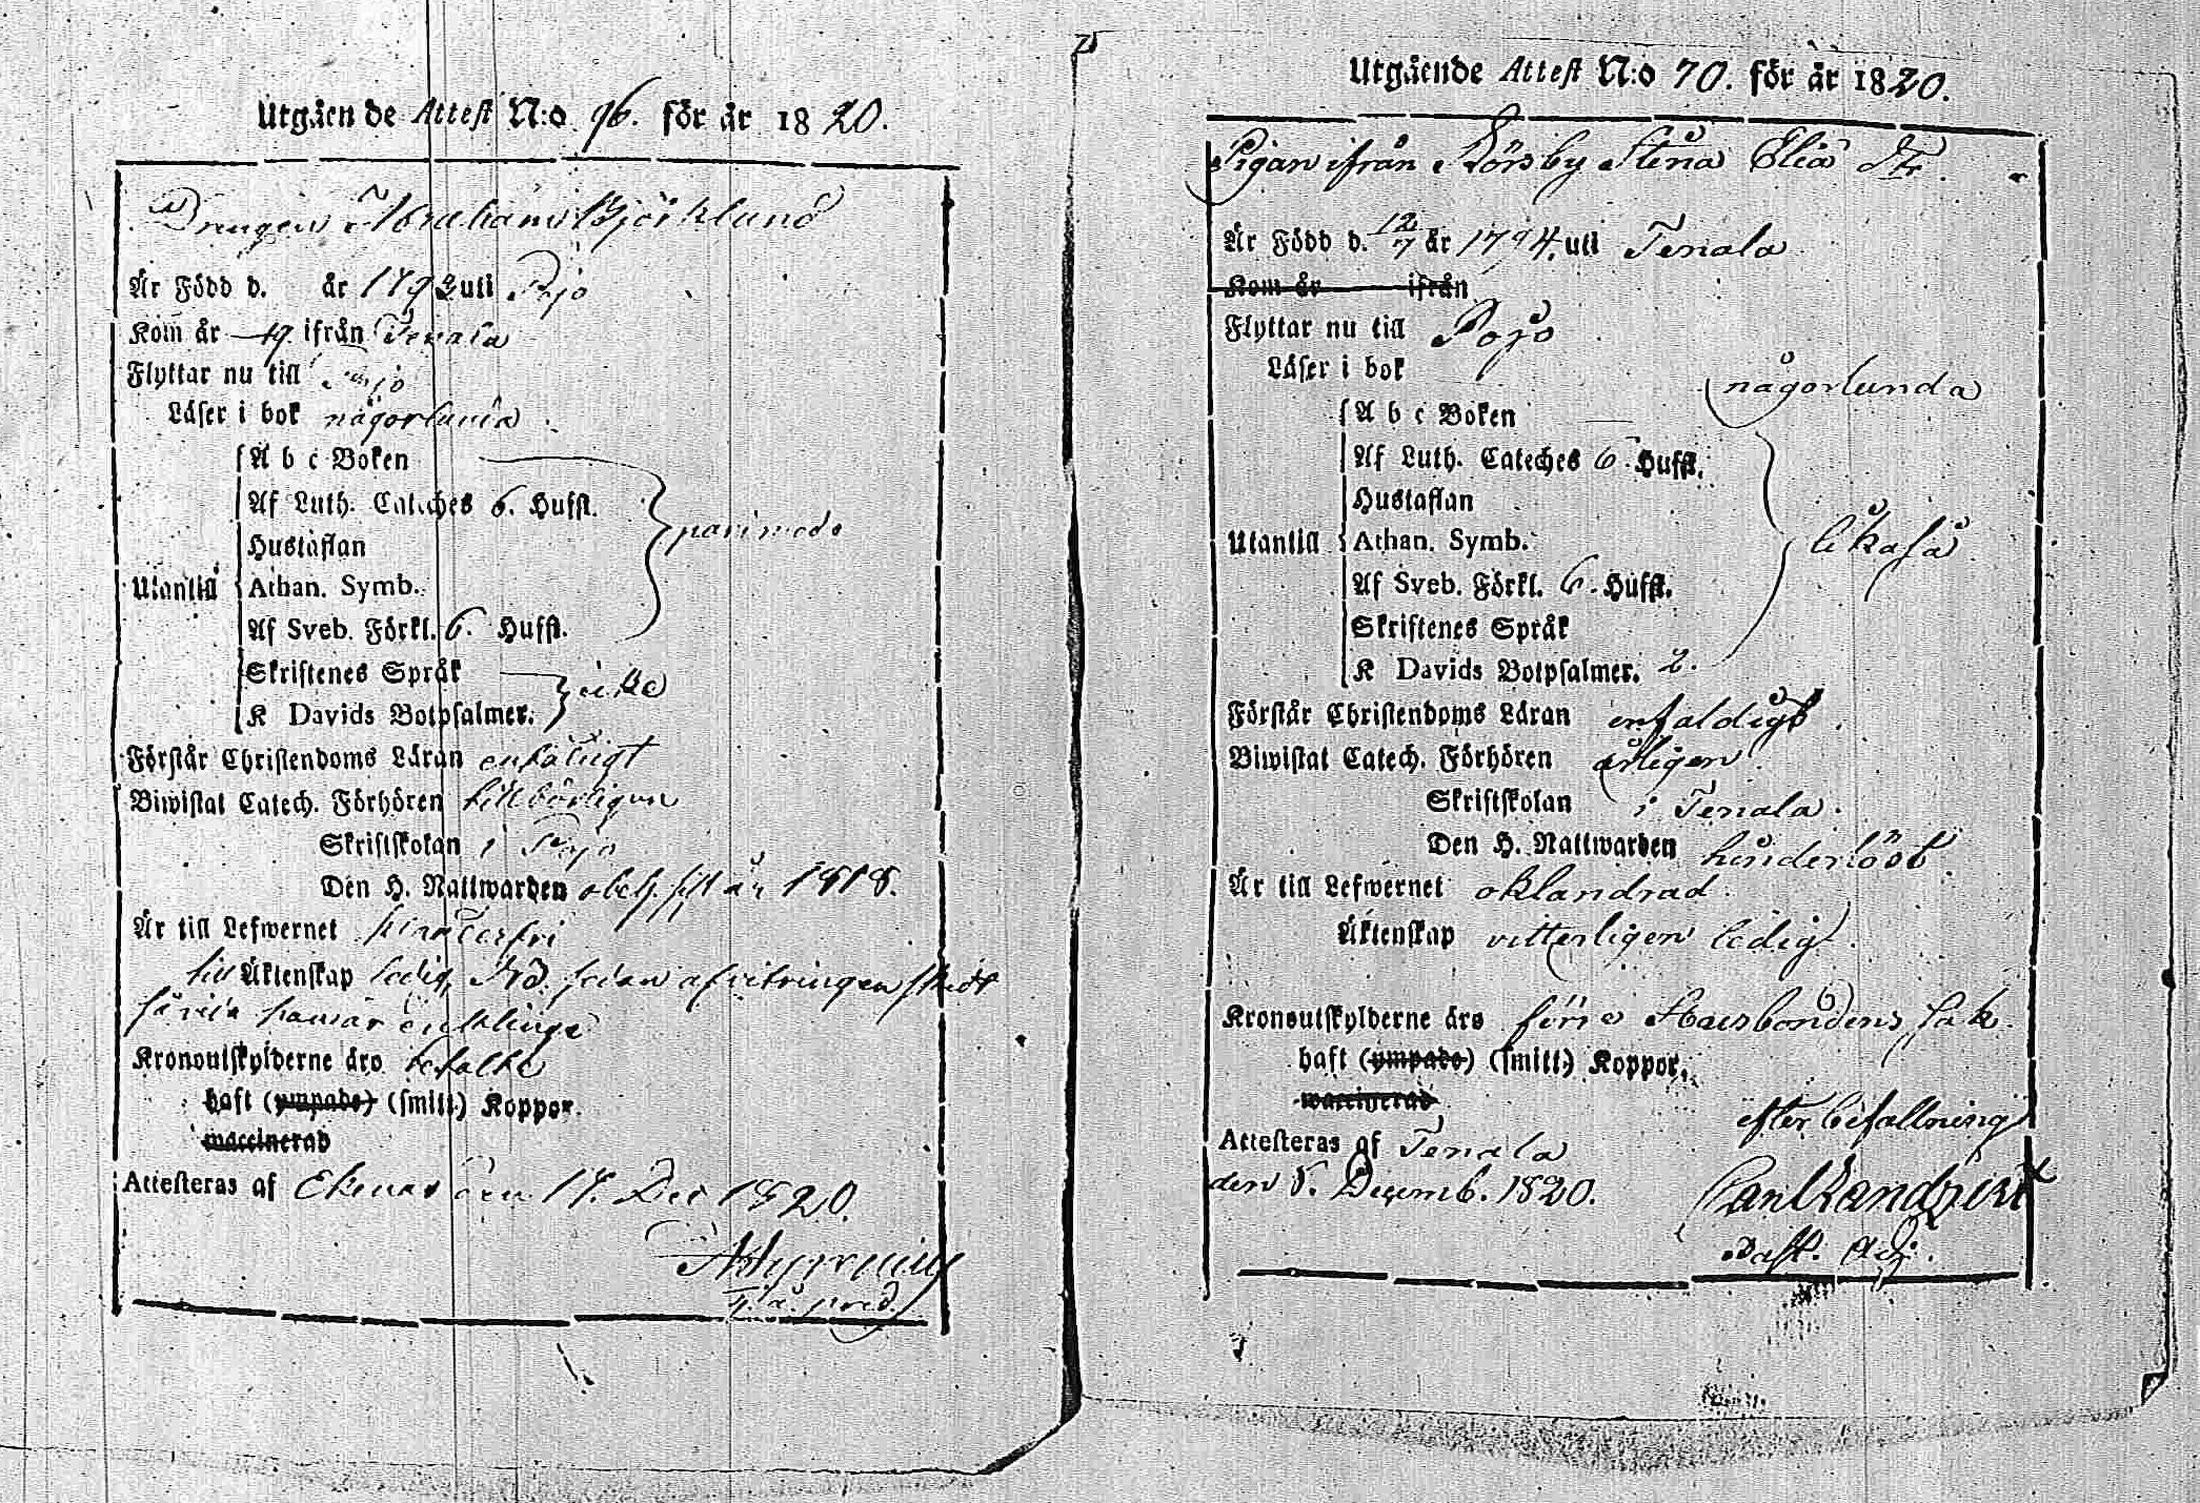 Utgående Attest N:o 96. för år 1820.
Drengen Abraham Björklund
Är Född d. år 1792 uti Pojo
Kom år 19 ifrån Tenala
Flyttar nu till Pojo
Läser i bok någorlunda
A b c Boken
Af Luth. Cateches 6. Hufst.
Hustaflan
Utantill Athan. Symb.
Af Sveb. Förkl. 6. Hufst.
Skriftenes Språk
K Davids Botpsalmer.
icke
Förstår Christendoms Läran enfaldigt
Biwistat Catech. Förhören tillbörligen
Skriftskolan i Pojo
Den H. Nattwarden år 1818.
Är till Lefwernet
till Äktenskap ledig,
Kronoutskylderne äro betalte
haft (ympade) (smitt.) Koppor.
waccinerad
Attesteras af Ekenäs den 14. Dec 1820.
Utgående Attest N:o 70. för år 1820.
Pigan ifrån Körsby Stina Elia Dtr.
Är Född d. 12/7 år 1794. uti Tenala
Kom år ifrån
Flyttar nu till Pojo
Läser i bok någorlunda
A b c Boken
Af Luth. Cateches 6. Hufst.
Hustaflan
Utantill Athan. Symb. likaså
Af Sveb. Förkl. 6. Hufst.
Skriftenes Språk
K Davids Botpsalmer. 2.
Förstår Christendoms Läran enfaldigt
Biwistat Catech. Förhören årligen
Skriftskolan i Tenala.
Den H. Nattwarden hinderlöst.
Är till Lefwernet oklandrad.
Äktenskap vitterligen ledig.
Kronoutskylderne äro Husbondens sak.
haft (ympade) (smitt.) Koppor.
waccinerad
efter befallning
Attesteras af Tenala
den 8. Decemb. 1820.
Past. Adj.